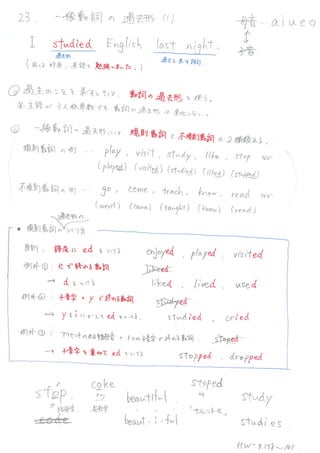 23. 一般動詞の過去形(1)
母音…aiueo
↕
子音
I studied English last night.
過去形
過去を表す語句
(私は昨夜、英語を勉強しました。)
① 過去のことを表すときは、動詞の過去形を使う。
※主語が3人称単数でも動詞の過去形は変化しない。
② 一般動詞の過去形には規則動詞と不規則動詞の2種類ある。
規則動詞の例 … play, visit, study, like, stop etc
(played) (visited) (studied) (liked) (stopped)
不規則動詞の例 … go, come, teach, know, read etc
(went) (came) (taught) (knew) (read)
過去形の
● 規則動詞のつくり方
原則: 語尾に ed をつける enjoyed, played, visited
例外①: e で終わる動詞 likeed
→ d をつける liked, lived, used
例外②: 子音字 + y で終わる動詞 studyed
→ y を i にかえて ed をつける studied, cried
例外③: + 1つの子音字で終わる動詞 stoped
→ 子音字を重ねて ed をつける stopped, dropped
stop. coke beautiful stoped study
code beaut-i-ful. studies